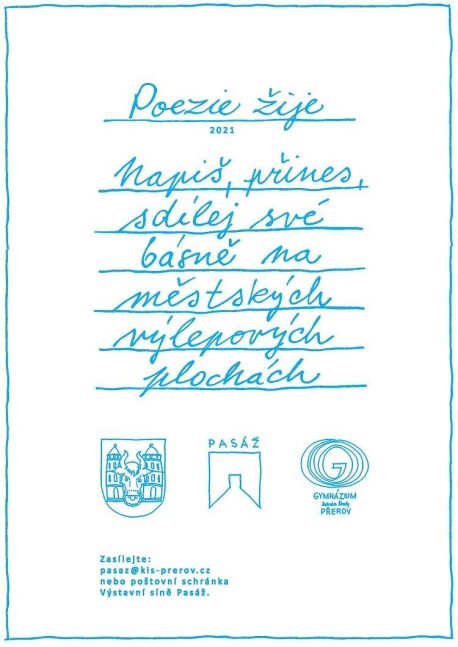 Poezie žije
2021
Napiš, přines,
sdílej své
básně na
městských
výlepových
plochách
PASÁŽ
G
GYMNÁZIUM
Jakuba Škody
PŘEROV
Zasílejte:
pasaz@kis-prerov.cz
nebo poštovní schránka
Výstavní síně Pasáž.